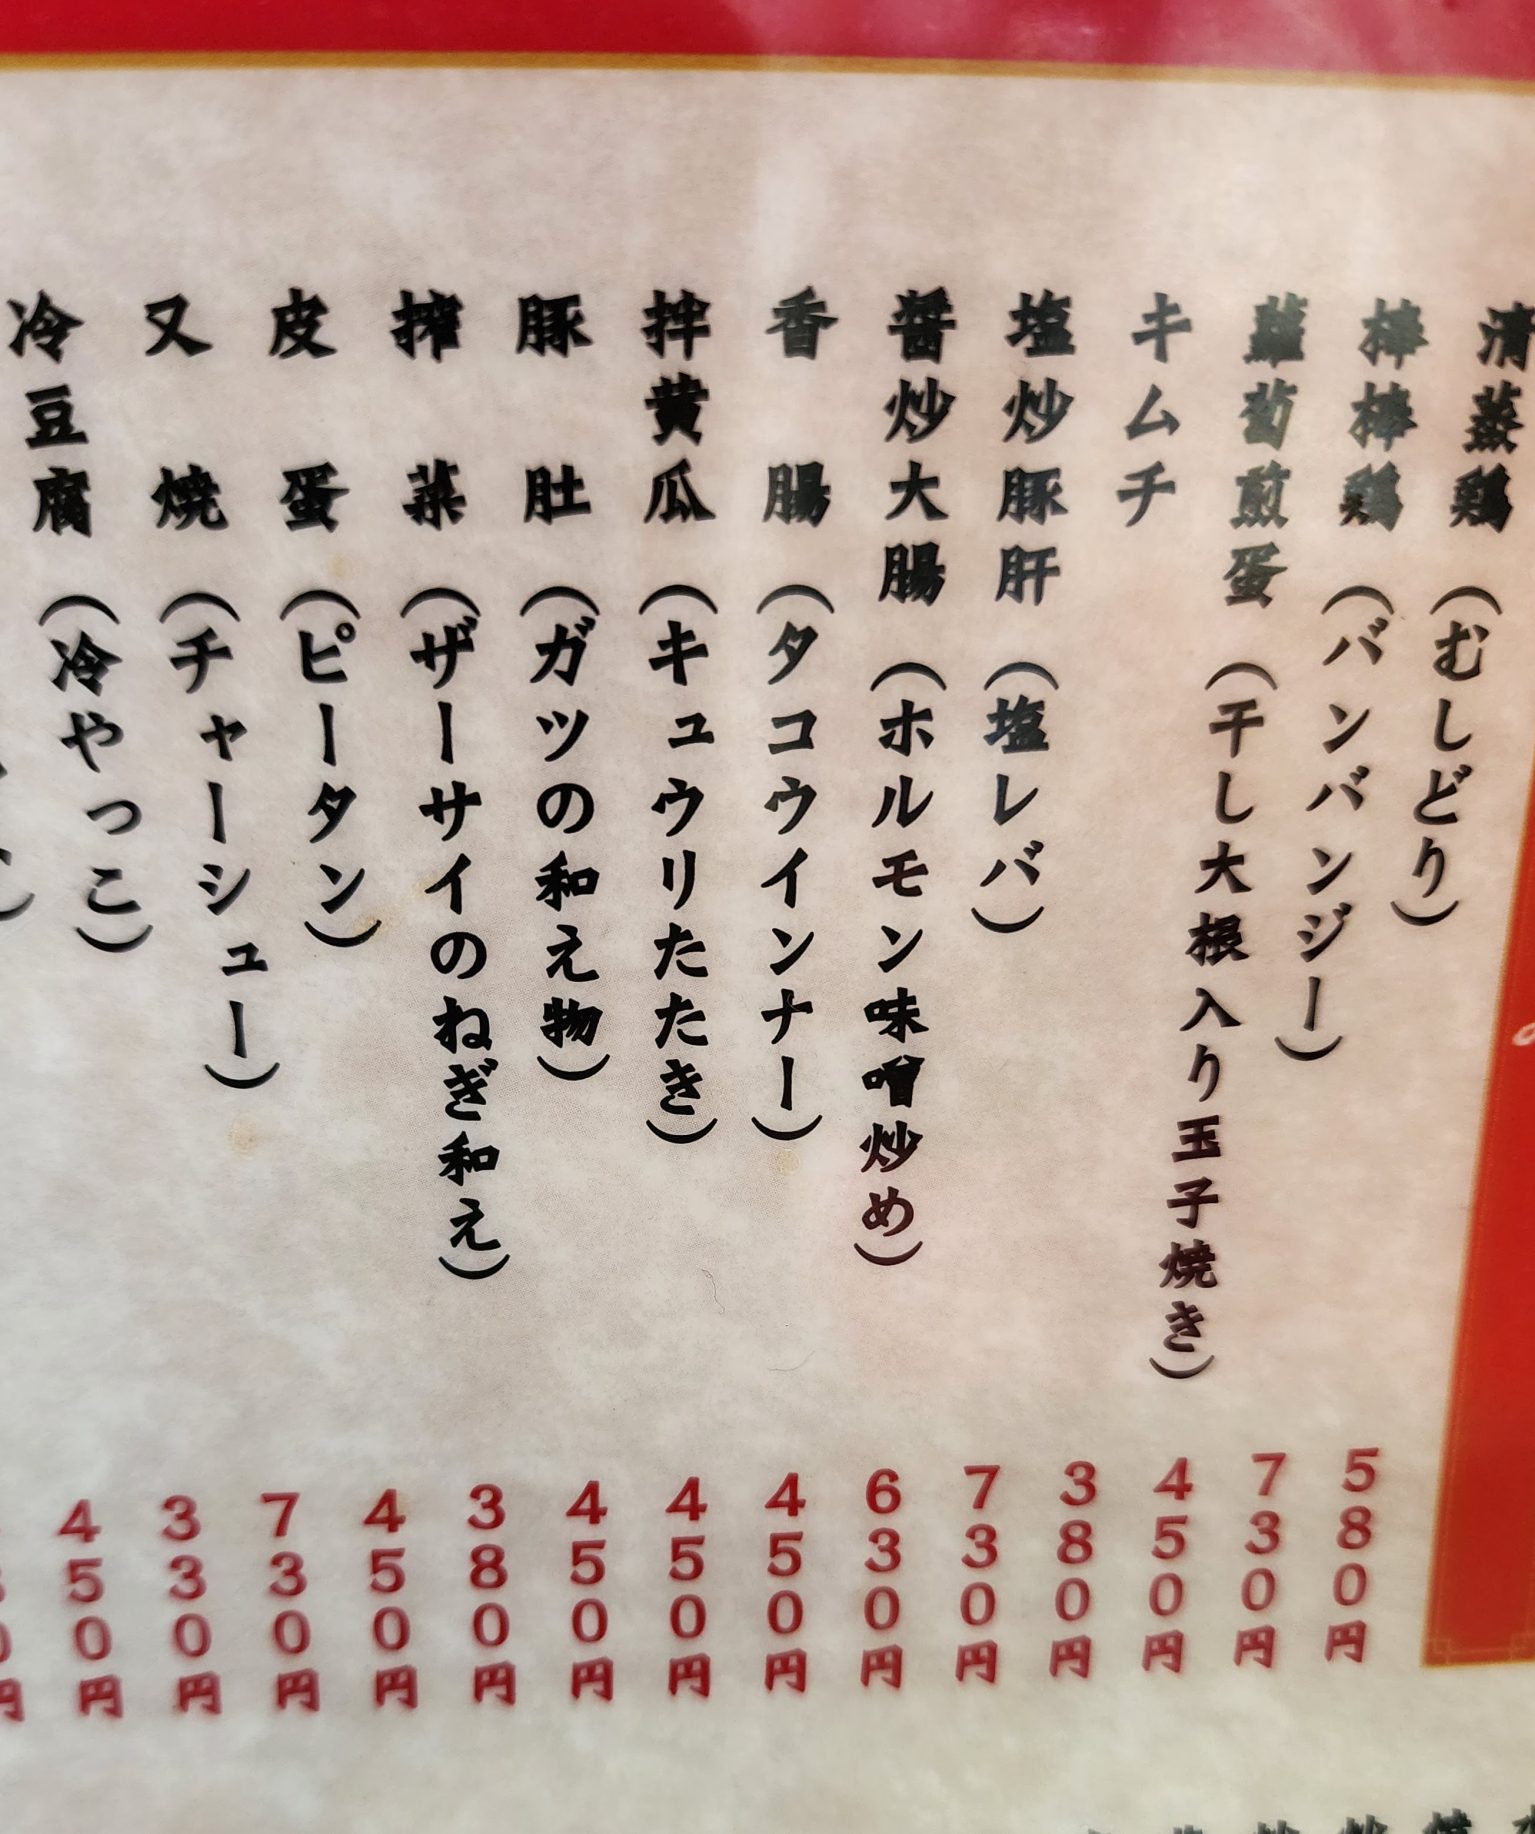 清蒸鶏（むしどり） 580円
棒棒鶏（バンバンジー） 730円
蘿蔔煎蛋（干し大根入り玉子焼き） 450円
キムチ 380円
塩炒豚肝（塩レバ） 730円
醤炒大腸（ホルモン味噌炒め） 630円
香腸（タコウインナー） 450円
拌黄瓜（キュウリたたき） 450円
豚肚（ガツの和え物） 450円
搾菜（ザーサイのねぎ和え） 380円
皮蛋（ピータン） 450円
又焼（チャーシュー） 730円
冷豆腐（冷やっこ） 330円
450円